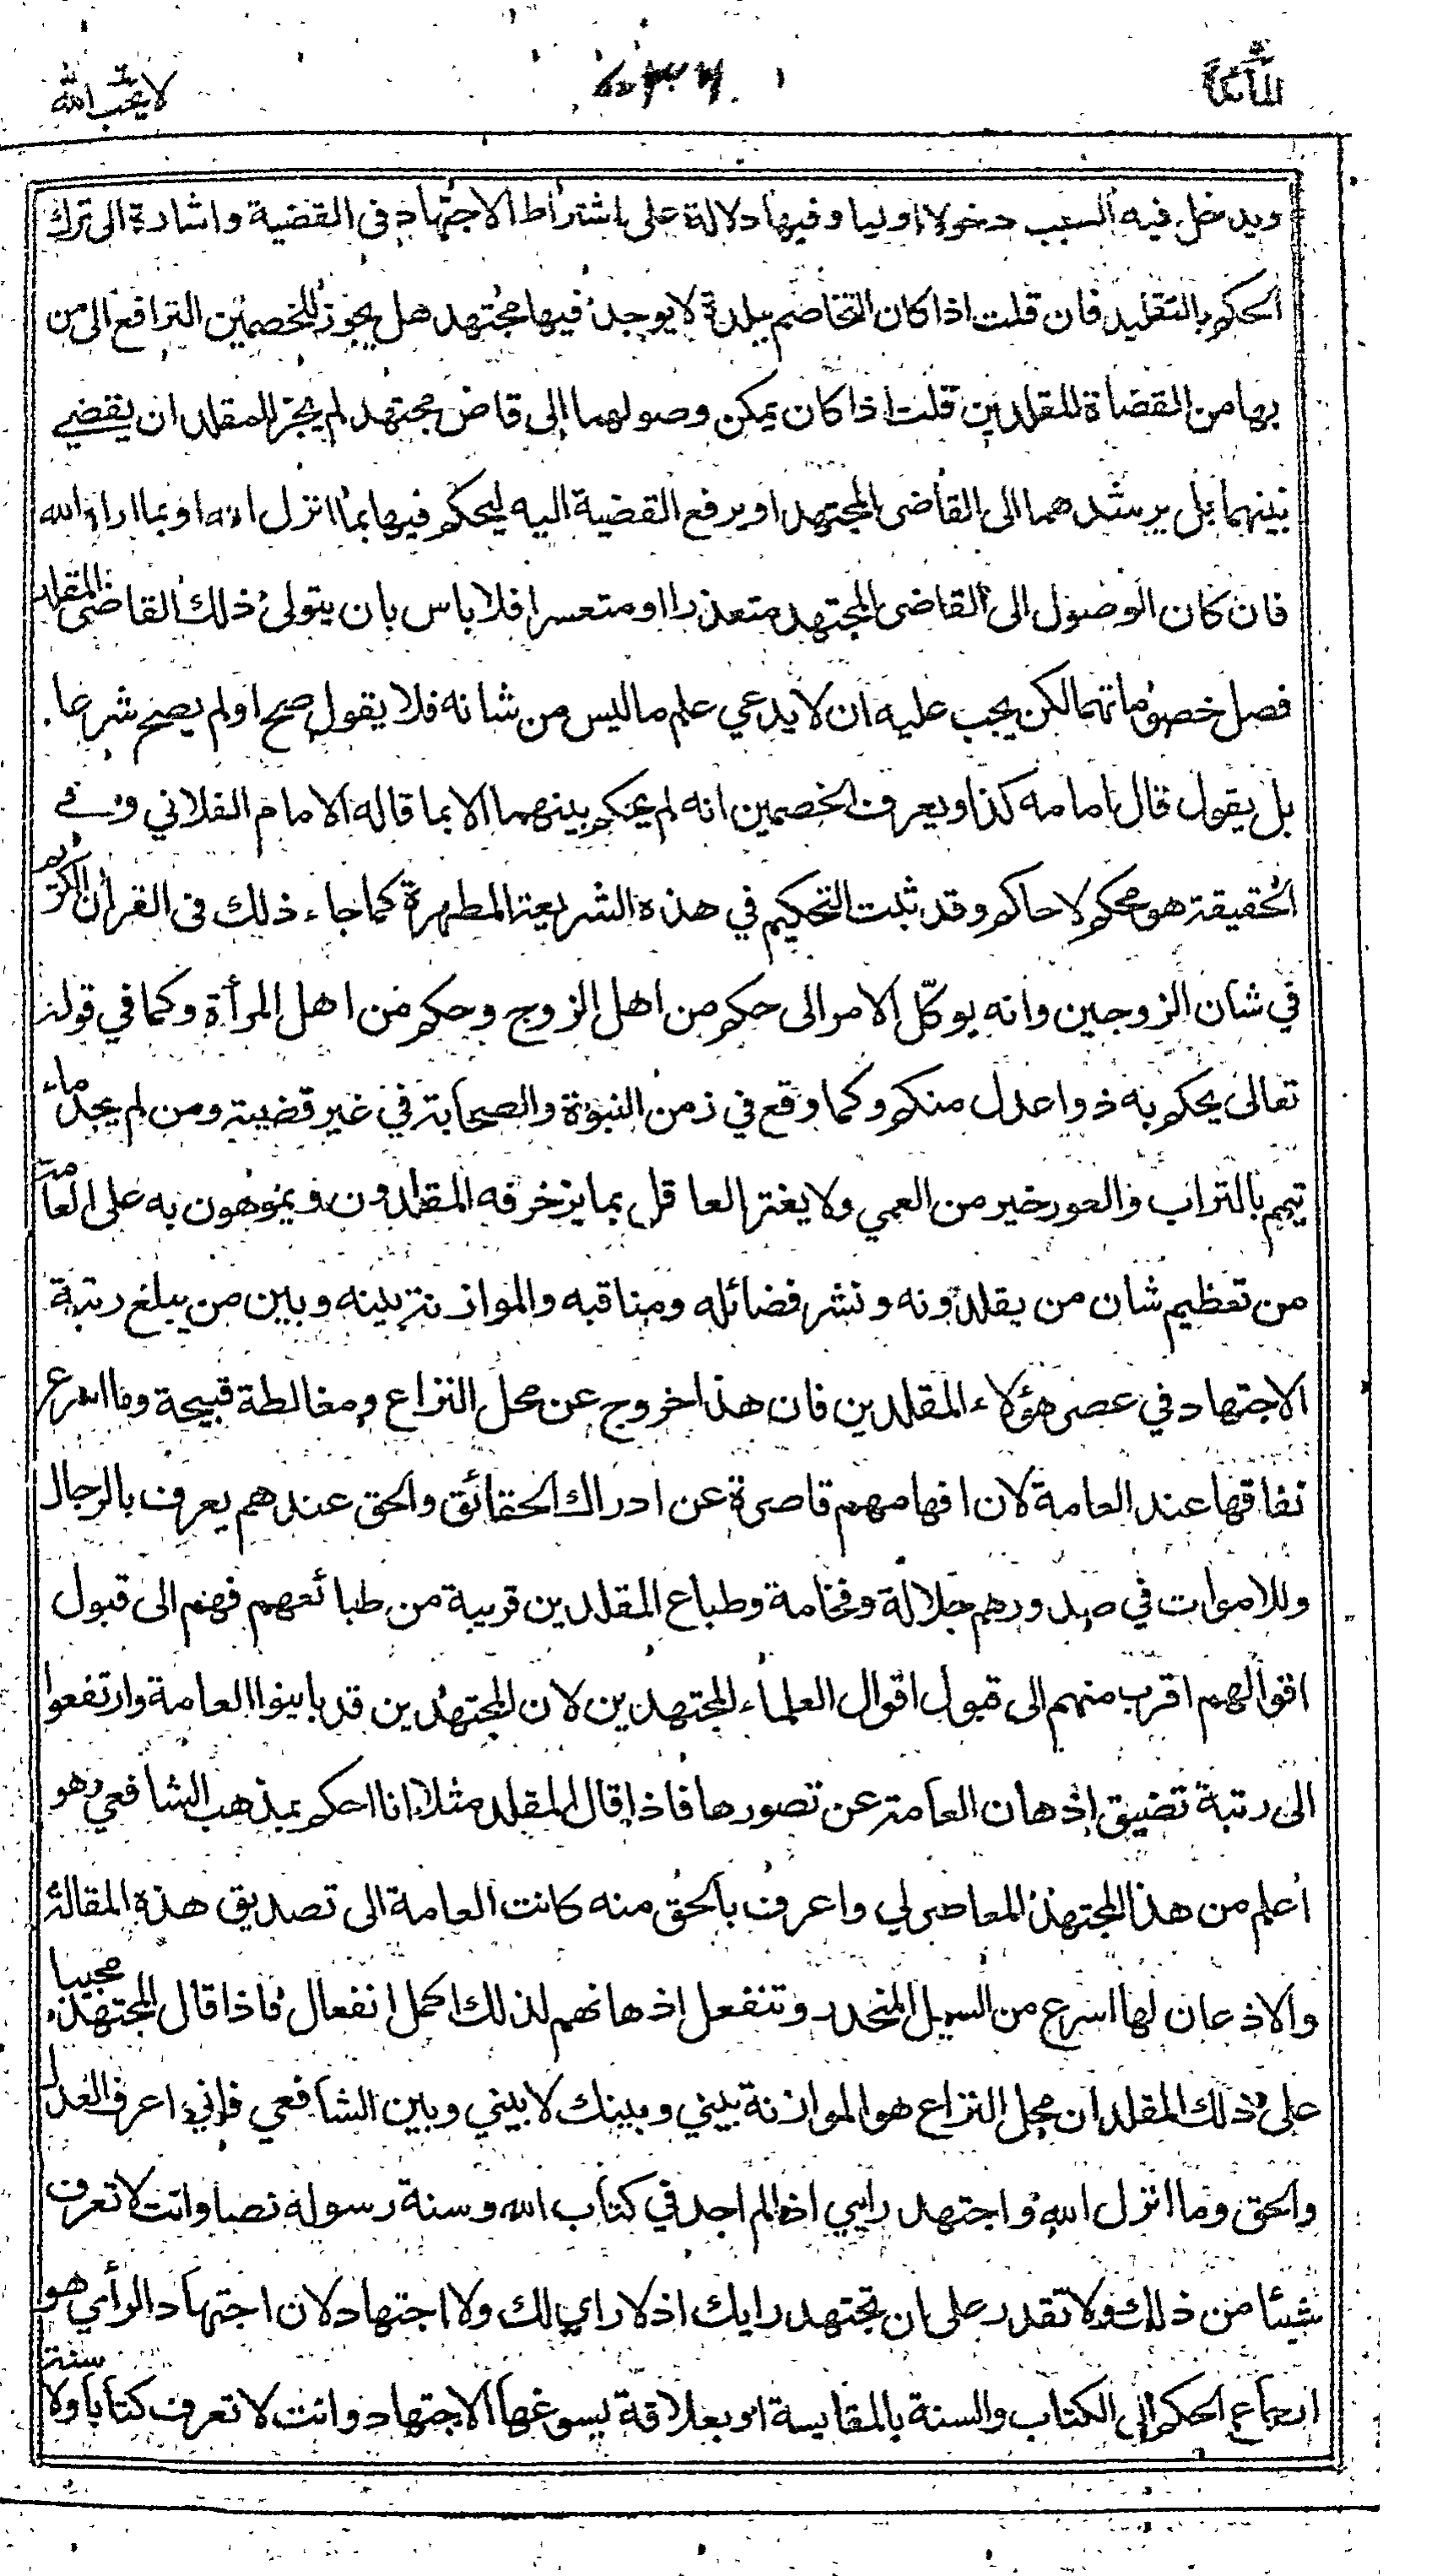 لا يحب الله
ويدخل فيه السبب دخولا اوليا وفيها دلالة على اشتراط الاجتهاد في القضية واشارة الى ترك
الحكم بالتقليد فان قلت اذا كان التخاصم ببلدة لا يوجد فيها مجتهد هل يجوز للخصمين الترافع الى من
بها من القضاة المقلدين قلت اذا كان يمكن وصولهما الى قاض مجتهد لم يجز للمقلد ان يقضي
بينهما بل يرشدهما الى القاضي المجتهد او يرفع القضية اليه ليحكم فيها بما انزل الله او بما اراه الله
فان كان الوصول الى القاضي المجتهد متعذرا او متعسرا فلا باس بان يتولى ذلك القاضي المقلد
فصل خصوماتهما لكن يجب عليه ان لا يدعي علم ما ليس من شانه فلا يقول صح او لم يصح شرعا
بل يقول قال امامه كذا ويعرف الخصمين انه لم يحكم بينهما الا بما قاله الامام الفلاني وفي
الحقيقة هو محكم لا حاكم وقد ثبت التحكيم في هذه الشريعة المطهرة كما جاء ذلك في القرأن الكريم
في شان الزوجين وانه يوكّل الامر الى حكم من اهل الزوج وحكم من اهل المرأة وكما في قوله
تعالى يحكم به ذوا عدل منكم وكما وقع في زمن النبوة والصحابة في غير قضية ومن لم يجد ماء
تيمم بالتراب والعور خير من العمي ولا يغتر العاقل بما يزخرفه المقلدون ويموهون به على العامة
من تعظيم شان من يقلدونه ونشر فضائله ومناقبه والموازنة بينه وبين من يبلغ رتبة
الاجتهاد في عصر هؤلاء المقلدين فان هذا خروج عن محل النزاع ومغالطة قبيحة وما اسرع
نفاقها عند العامة لان افهامهم قاصرة عن ادراك الحقائق والحق عندهم يعرف بالرجال
وللاموات في صدورهم جلالة وفخامة وطباع المقلدين قريبة من طبائعهم فهم الى قبول
اقوالهم اقرب منهم الى قبول اقوال العلماء المجتهدين لان المجتهدين قد باينوا العامة وارتفعوا
الى رتبة تضيق اذهان العامة عن تصورها فاذا قال المقلد مثلا انا احكم بمذهب الشافعي وهو
اعلم من هذا المجتهد المعاصر لي واعرف بالحق منه كانت العامة الى تصديق هذه المقالة
والاذعان لها اسرع من السيل المنحدر وتنفعل اذهانهم لذلك اكمل انفعال فاذا قال المجتهد مجيبا
على ذلك المقلد ان محل النزاع هو الموازنة بيني وبينك لا بيني وبين الشافعي فاني اعرف العدل
والحق وما انزل الله واجتهد رايي اذا لم اجد في كتاب الله وسنة رسوله نصا وانت لا تعرف
شيئا من ذلك ولا تقدر على ان تجتهد رايك اذ لا راي لك ولا اجتهاد لان اجتهاد الرأي هو
ارجاع الحكم الى الكتاب والسنة بالمقايسة او بعلاقة يسوغها الاجتهاد وانت لا تعرف كتابا ولا سنة